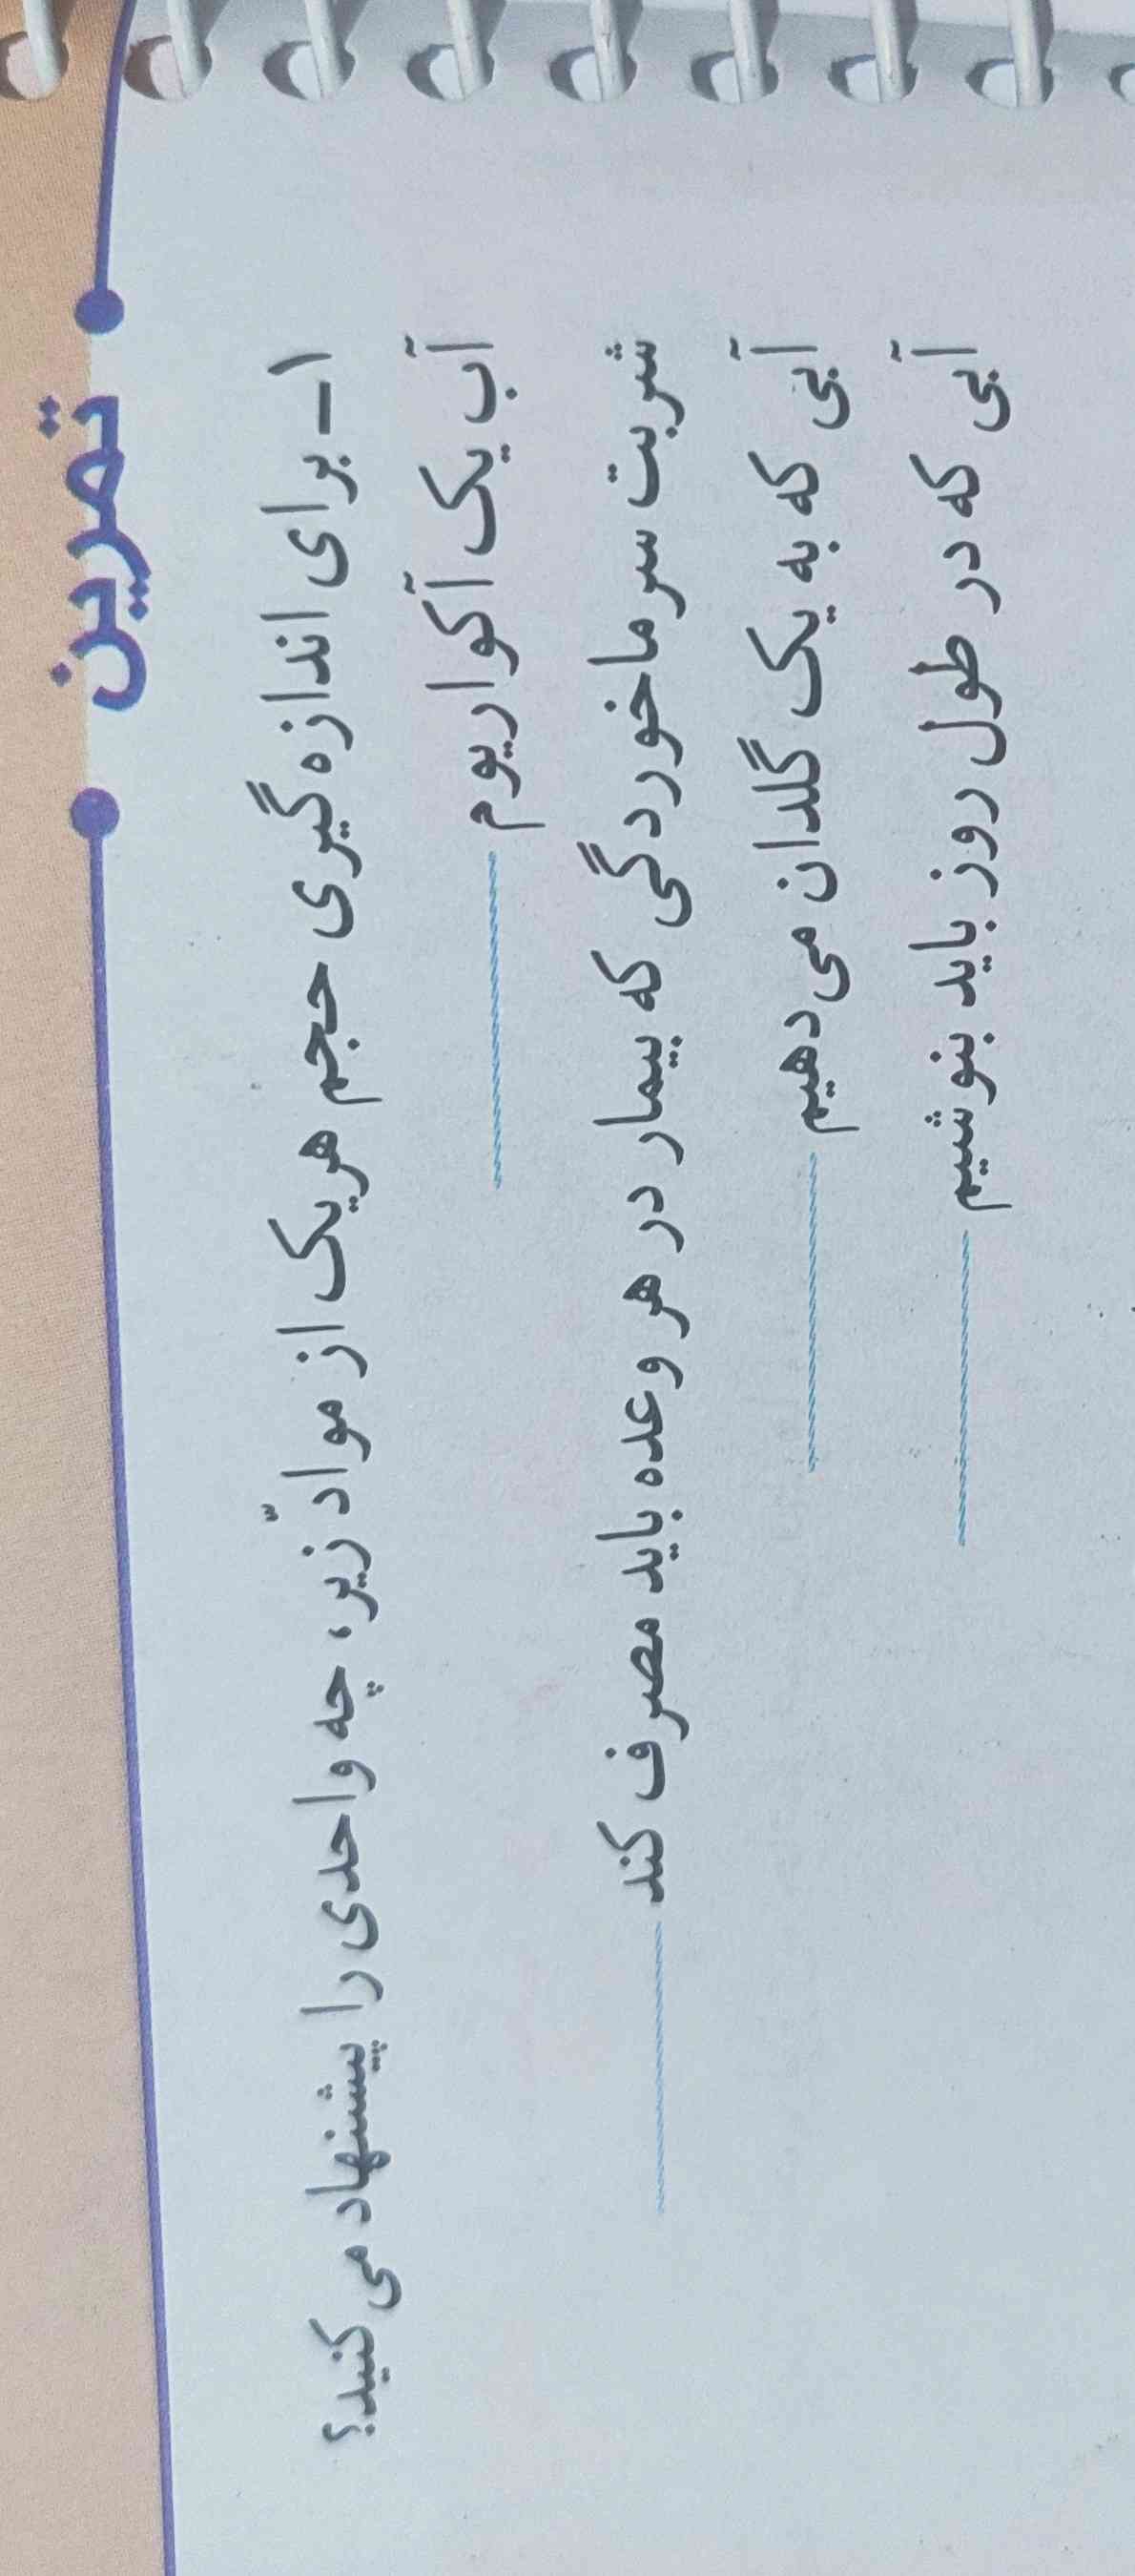 تمرین
۱ــ برای اندازه‌گیری حجم هریک از موادّ زیر، چه واحدی را پیشنهاد می‌کنید؟
آب یک آکواریوم
شربت سرماخوردگی که بیمار در هر وعده باید مصرف کند
آبی که به یک گلدان می‌دهیم
آبی که در طول روز باید بنوشیم